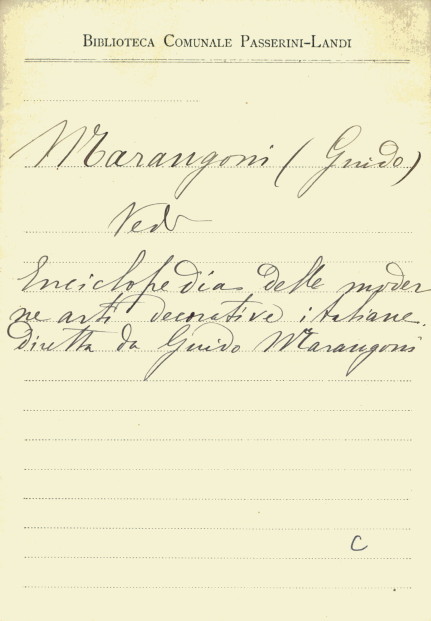 BIBLIOTECA COMUNALE PASSERINI-LANDI
Marangoni (Guido)
Vedi
Enciclopedia delle moder
ne arti decorative italiane.
diretta da Guido Marangoni
C